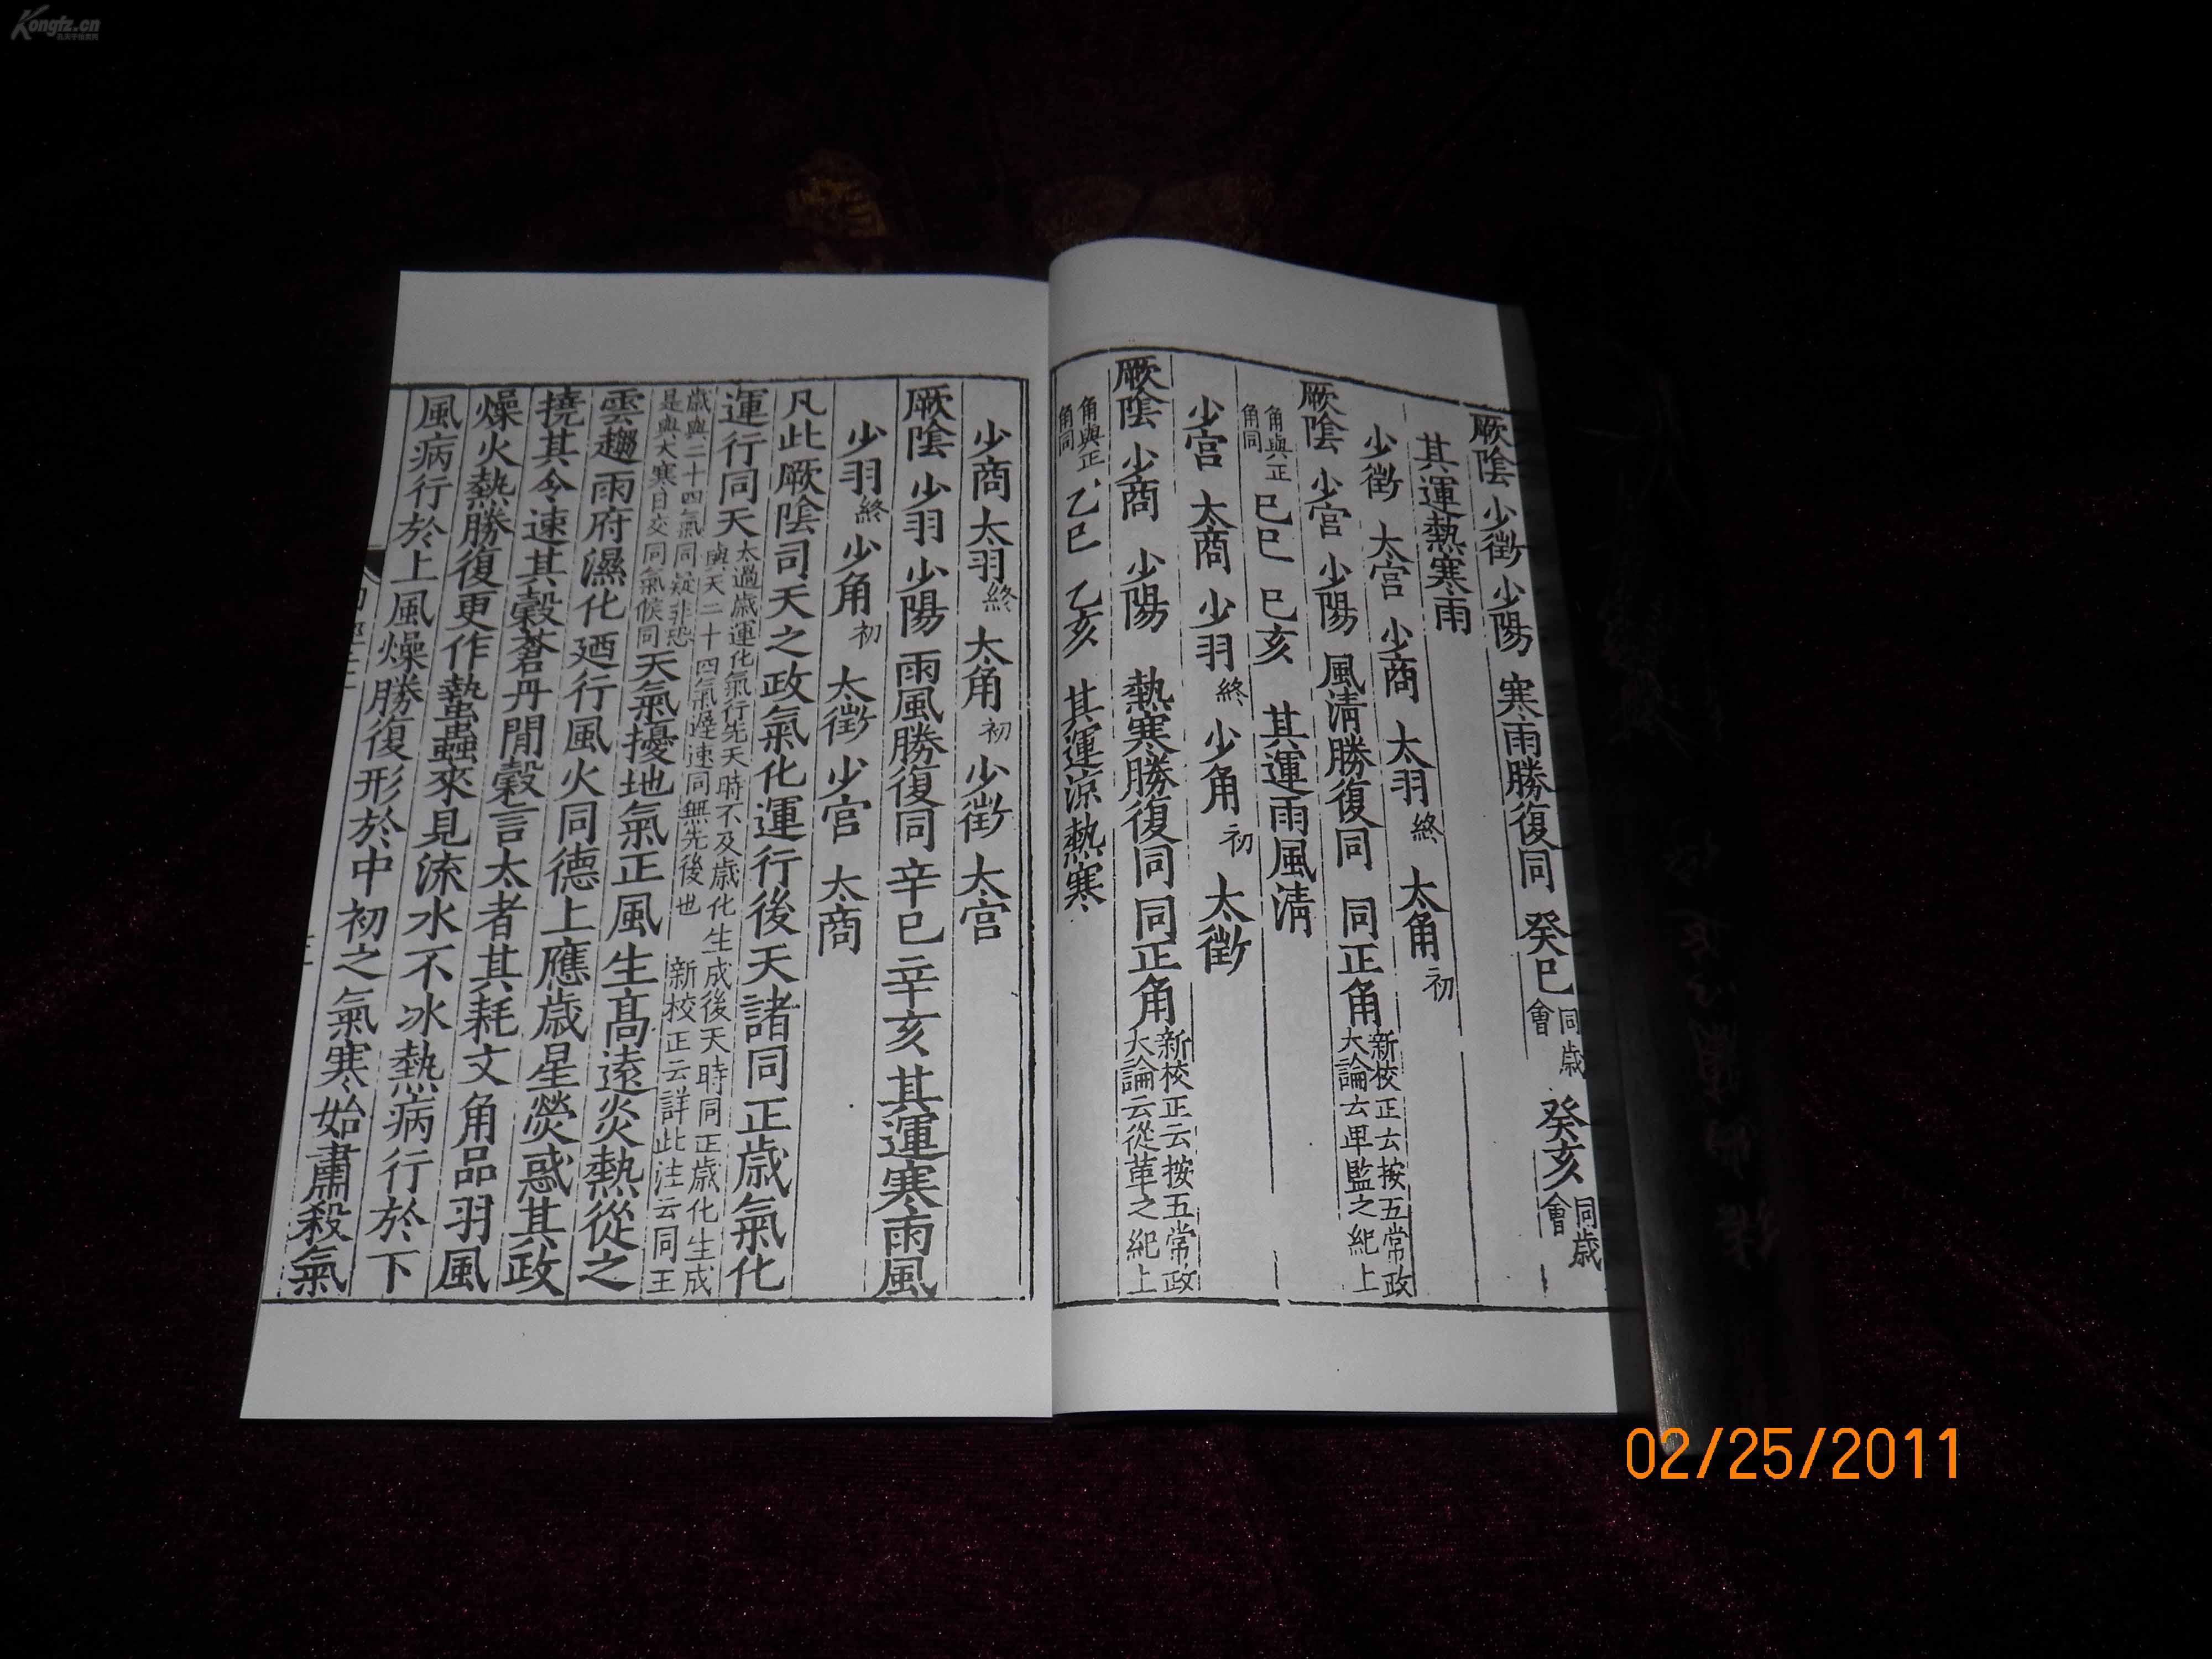 Kongfz.cn
厥陰 少徵 少陽 寒雨勝復同 癸巳 同歲會 癸亥 同歲會
其運熱寒雨
少徵 太宮 少商 太羽終 太角初
厥陰 少宮 少陽 風清勝復同 同正角 新校正云按五常政大論云卑監之紀上
角與正角同 己巳 己亥 其運雨風清
少宮 太商 少羽終 少角初 太徵
厥陰 少商 少陽 熱寒勝復同 同正角 新校正云按五常政大論云從革之紀上
角與正角同 乙巳 乙亥 其運涼熱寒
少商 太羽終 太角初 少徵 太宮
厥陰 少羽 少陽 雨風勝復同 辛巳 辛亥 其運寒雨風
少羽終 少角初 太徵 少宮 太商
凡此厥陰司天之政氣化運行後天諸同正歲氣化
運行同天 太過歲運化氣行先天時不及歲化生成後天時同正歲化生成與天二十四氣遲速同無先後也 新校正云詳此注云同正
歲與二十四氣同疑非恐是與大寒日交同氣候同 天氣擾地氣正風生高遠炎熱從之
雲趨雨府濕化廼行風火同德上應歲星熒惑其政
撓其令速其穀蒼丹間穀言太者其耗文角品羽風
燥火熱勝復更作蟄蟲來見流水不冰熱病行於下
風病行於上風燥勝復形於中初之氣寒始肅殺氣
02/25/2011